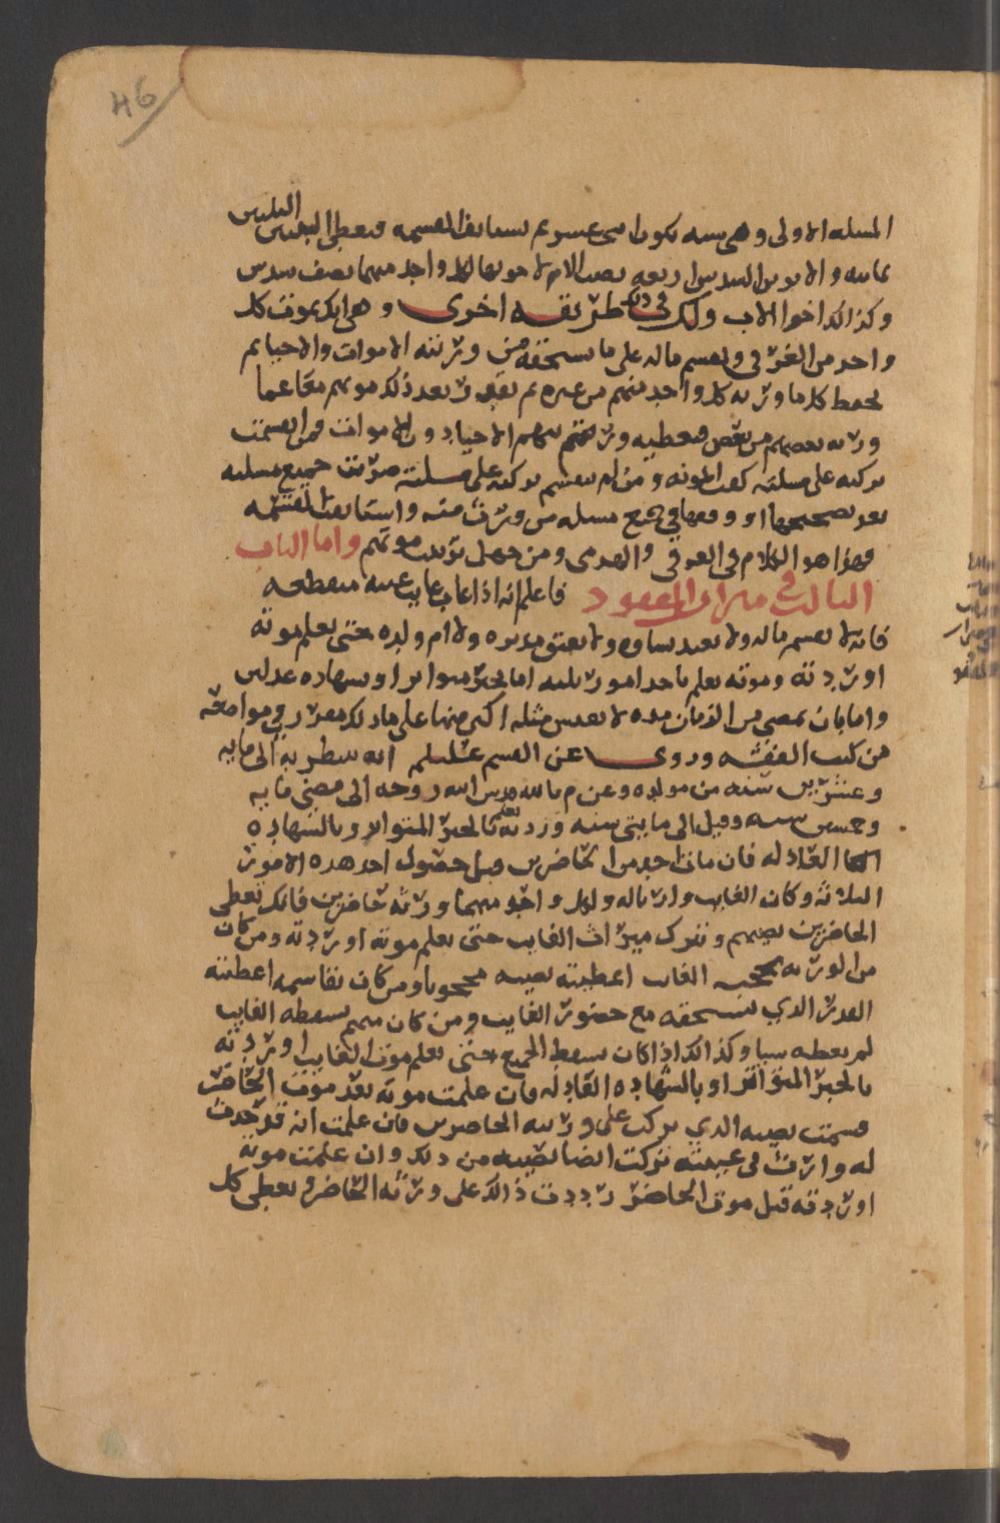 46
المسله الاولى وهى سته يكون اثنى عشر ثم تستانف القسمه فتعطى البنتين الثلثين
ثمانيه والابوين السدسين اربعه نصيب الام لاخوتها لكل واحد منهما نصف سدس
وكذالك اخوا الاب ولك فى ذلك طريقه اخرى وهى انك تموت كل
واحد من الغرقى وتقسم ماله على ما يستحقه من ورثته الاموات والاحيا ثم
تحفظ كلما ورثه كل واحد منهم من غيره ثم تقدر بعد ذلك موتهم معا عما
ورثه بعضهم من بعض فتعطيه ورثتهم الاحيا دون الاموات فمن انقسمت
تركته على مسلته كفت المونه ومن لم تنقسم تركته على مسلته ضربت جميع مسلته
بعد تصحيحها او وفقها فى جميع مسله من ورث منه واستانفت القسمه
فهذا هو الكلام فى الغرقى والهدمى ومن جهل ترتيب موتهم واما الباب
الثالث فى ميراث المفقود فاعلم انه اذا غاب غايب غيبه منقطعه
فانه لا يقسم ماله ولا تعتد نساوه ولا يعتق مدبره ولا ام ولده حتى يعلم موته
او ردته وموته يعلم باحد امور ثلثه اما بخبر متواتر او بشهاده عدلين
واما بان يمضى من الزمان مده لا يعيش مثله اكثر منها على ما ذلك مقرر فى مواضعه
من كتب الفقه وروى عن القسم عليلم انه ينظر به الى مايه
وعشرين سنه من مولده وعن م بالله قدس الله روحه الى مضى مايه
وخمسين سنه وقيل الى مايتى سنه وردته تعلم بالخبر المتواتر وبالشهاده
العادله فان مات احد من الحاضرين قبل حصول احد هذه الامور
الثلاثه وكان الغايب وارثا له ولكل واحد منهما ورثه حاضرين فانك تعطى
الحاضرين نصيبهم وتترك ميراث الغايب حتى تعلم موته او ردته ومن كان
من الورثه يحجبه الغايب اعطيته نصيبه محجوبا ومن كان يقاسمه اعطيته
القدر الذي يستحقه مع حضور الغايب ومن كان منهم يسقطه الغايب
لم يعطه شيا وكذالك اذا كان يسقط الجميع حتى تعلم موت الغايب او ردته
بالخبر المتواتر او بالشهاده العادله فان علمت موته بعد موت الحاضر
قسمت نصيبه الذي تركت على ورثته الحاضرين فان علمت انه قد حدث
له وارث فى غيبته تركت ايضا نصيبه من ذلك وان علمت موته
او ردته قبل موت الحاضر رددت ذالك على ورثه الحاضر وتعطى كل